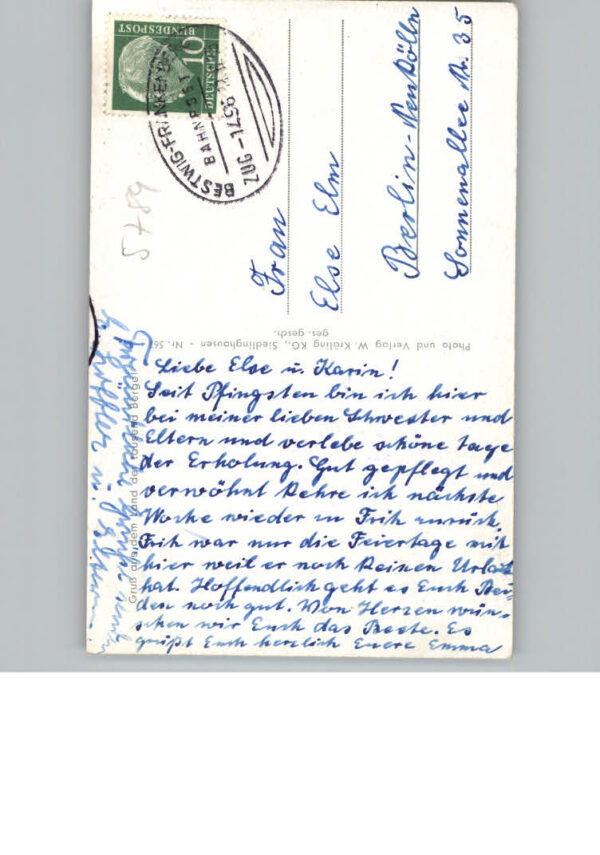 DEUTSCHE
BUNDESPOST
10
BESTWIG-FRANKENB
BAHNPOST
ZUG
5789
Frau
Else Elm
Berlin-Neukölln
Sonnenallee Nr. 35
Photo und Verlag W. Kröling KG., Siedlinghausen - Nr. 56
ges. gesch.
Gruß aus dem Land der tausend Berge
Liebe Else u. Karin!
Seit Pfingsten bin ich hier
bei meiner lieben Schwester und
Eltern und verlebe schöne Tage
der Erholung. Gut gepflegt und
verwöhnt kehre ich nächste
Woche wieder zu Frih zurück.
Frih war nur die Feiertage mit
hier weil er noch keinen Urlaub
hat. Hoffendlich geht es Euch Bei-
den noch gut. Von Herzen wün-
schen wir Euch das Beste. Es
grüßt Euch herzlich Euere Emma